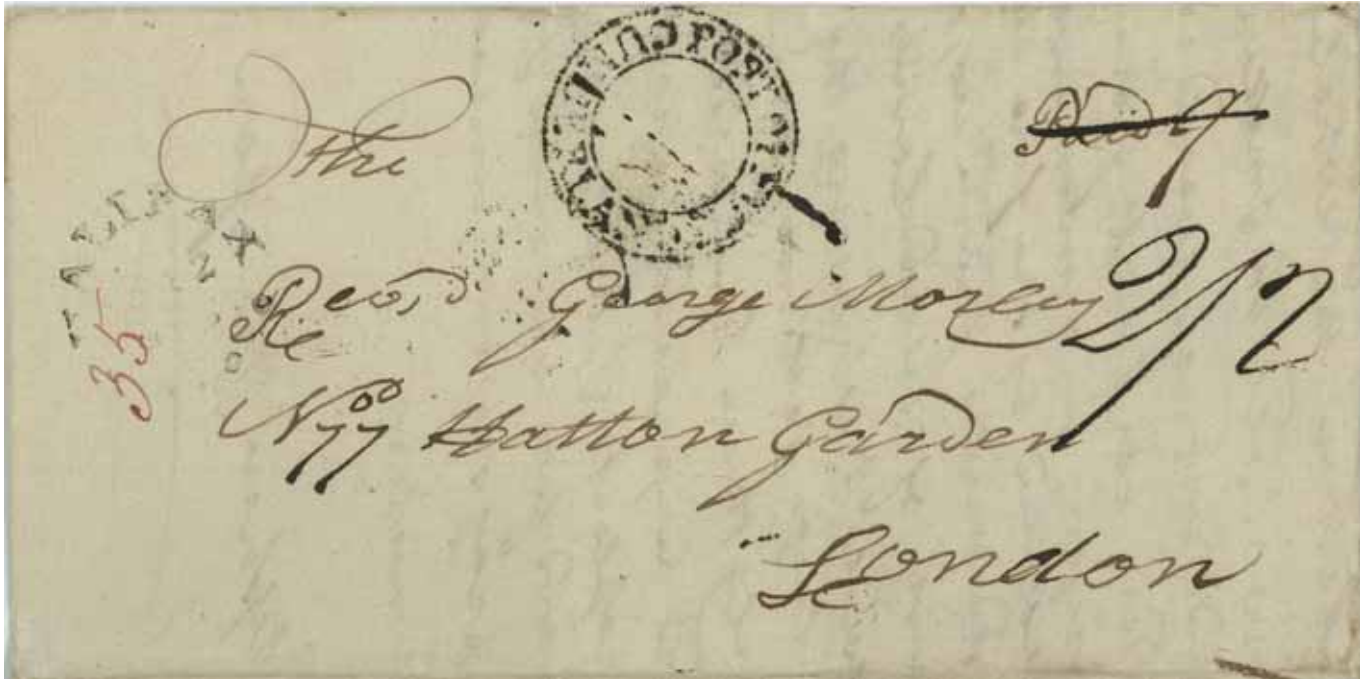 The
Paid 9
HALIFAX
N
35
Revd George Morley 2/2
No 77 Hatton Garden
London